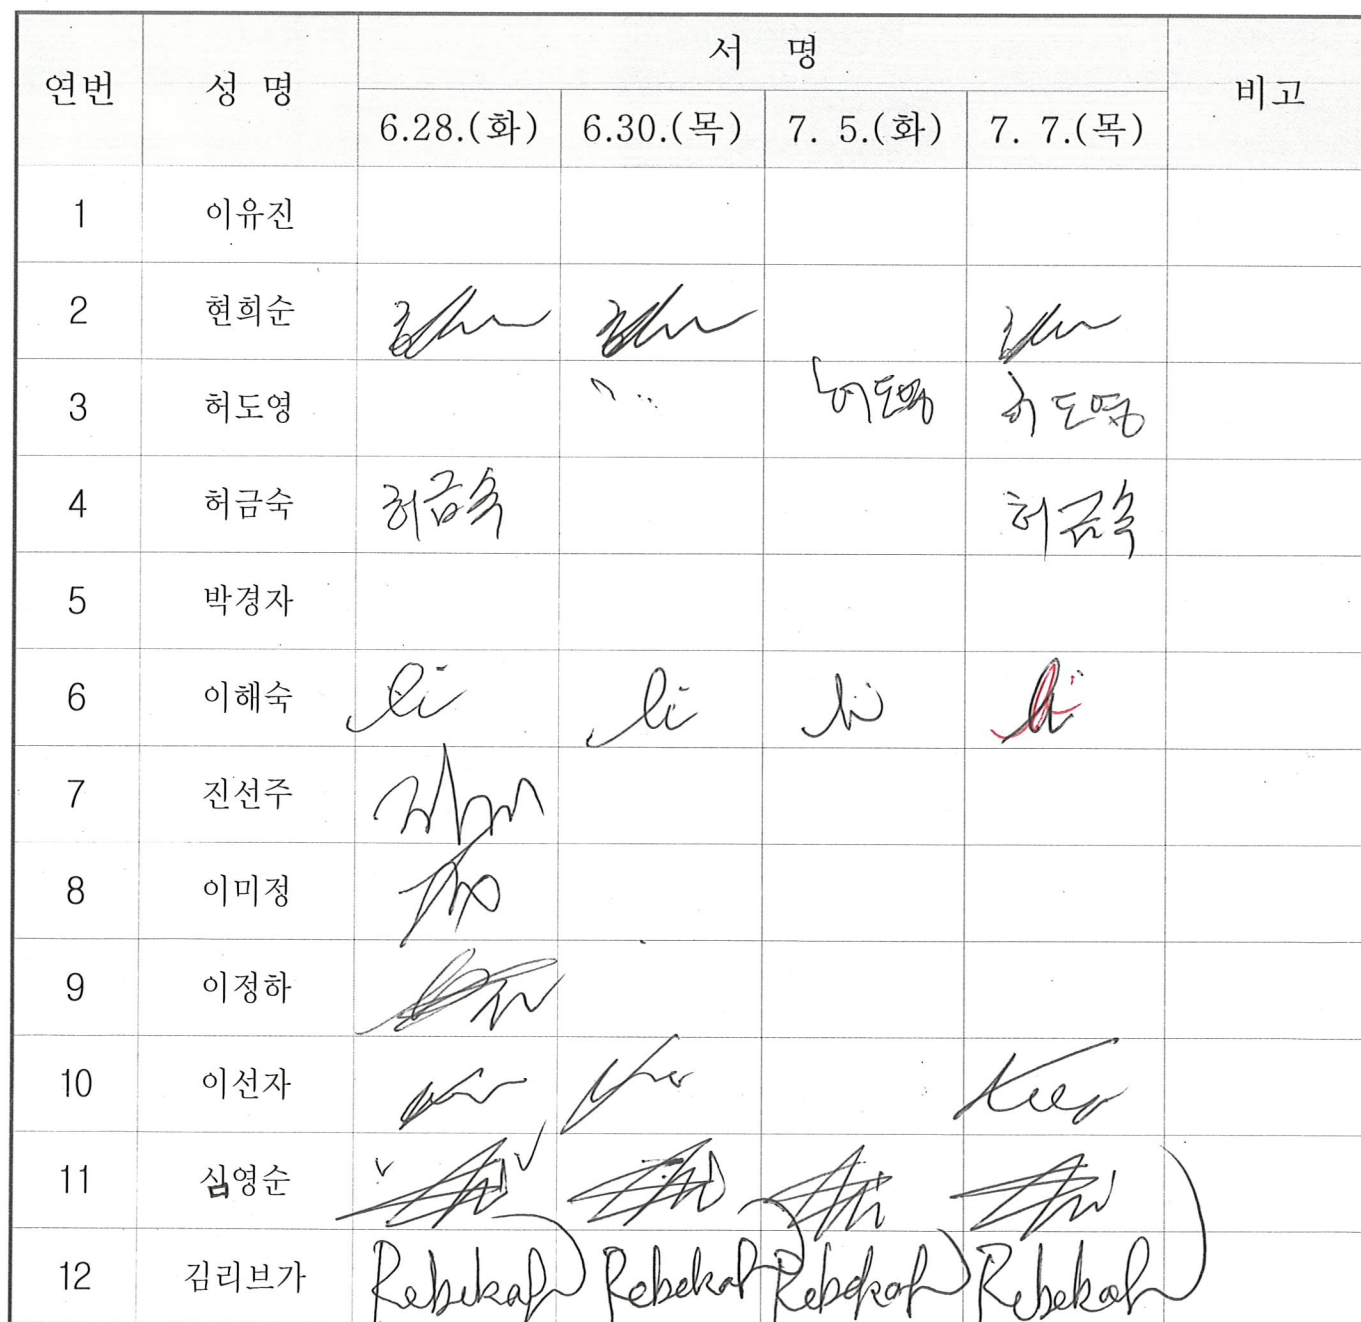 연번 성 명 서 명 비고
6.28.(화) 6.30.(목) 7. 5.(화) 7. 7.(목)
1 이유진
2 현희순
3 허도영 허도영 허도영
4 허금숙 허금숙 허금숙
5 박경자
6 이해숙 li li li li
7 진선주
8 이미정
9 이정하
10 이선자
11 심영순
12 김리브가 Rebekah Rebekah Rebekah Rebekah